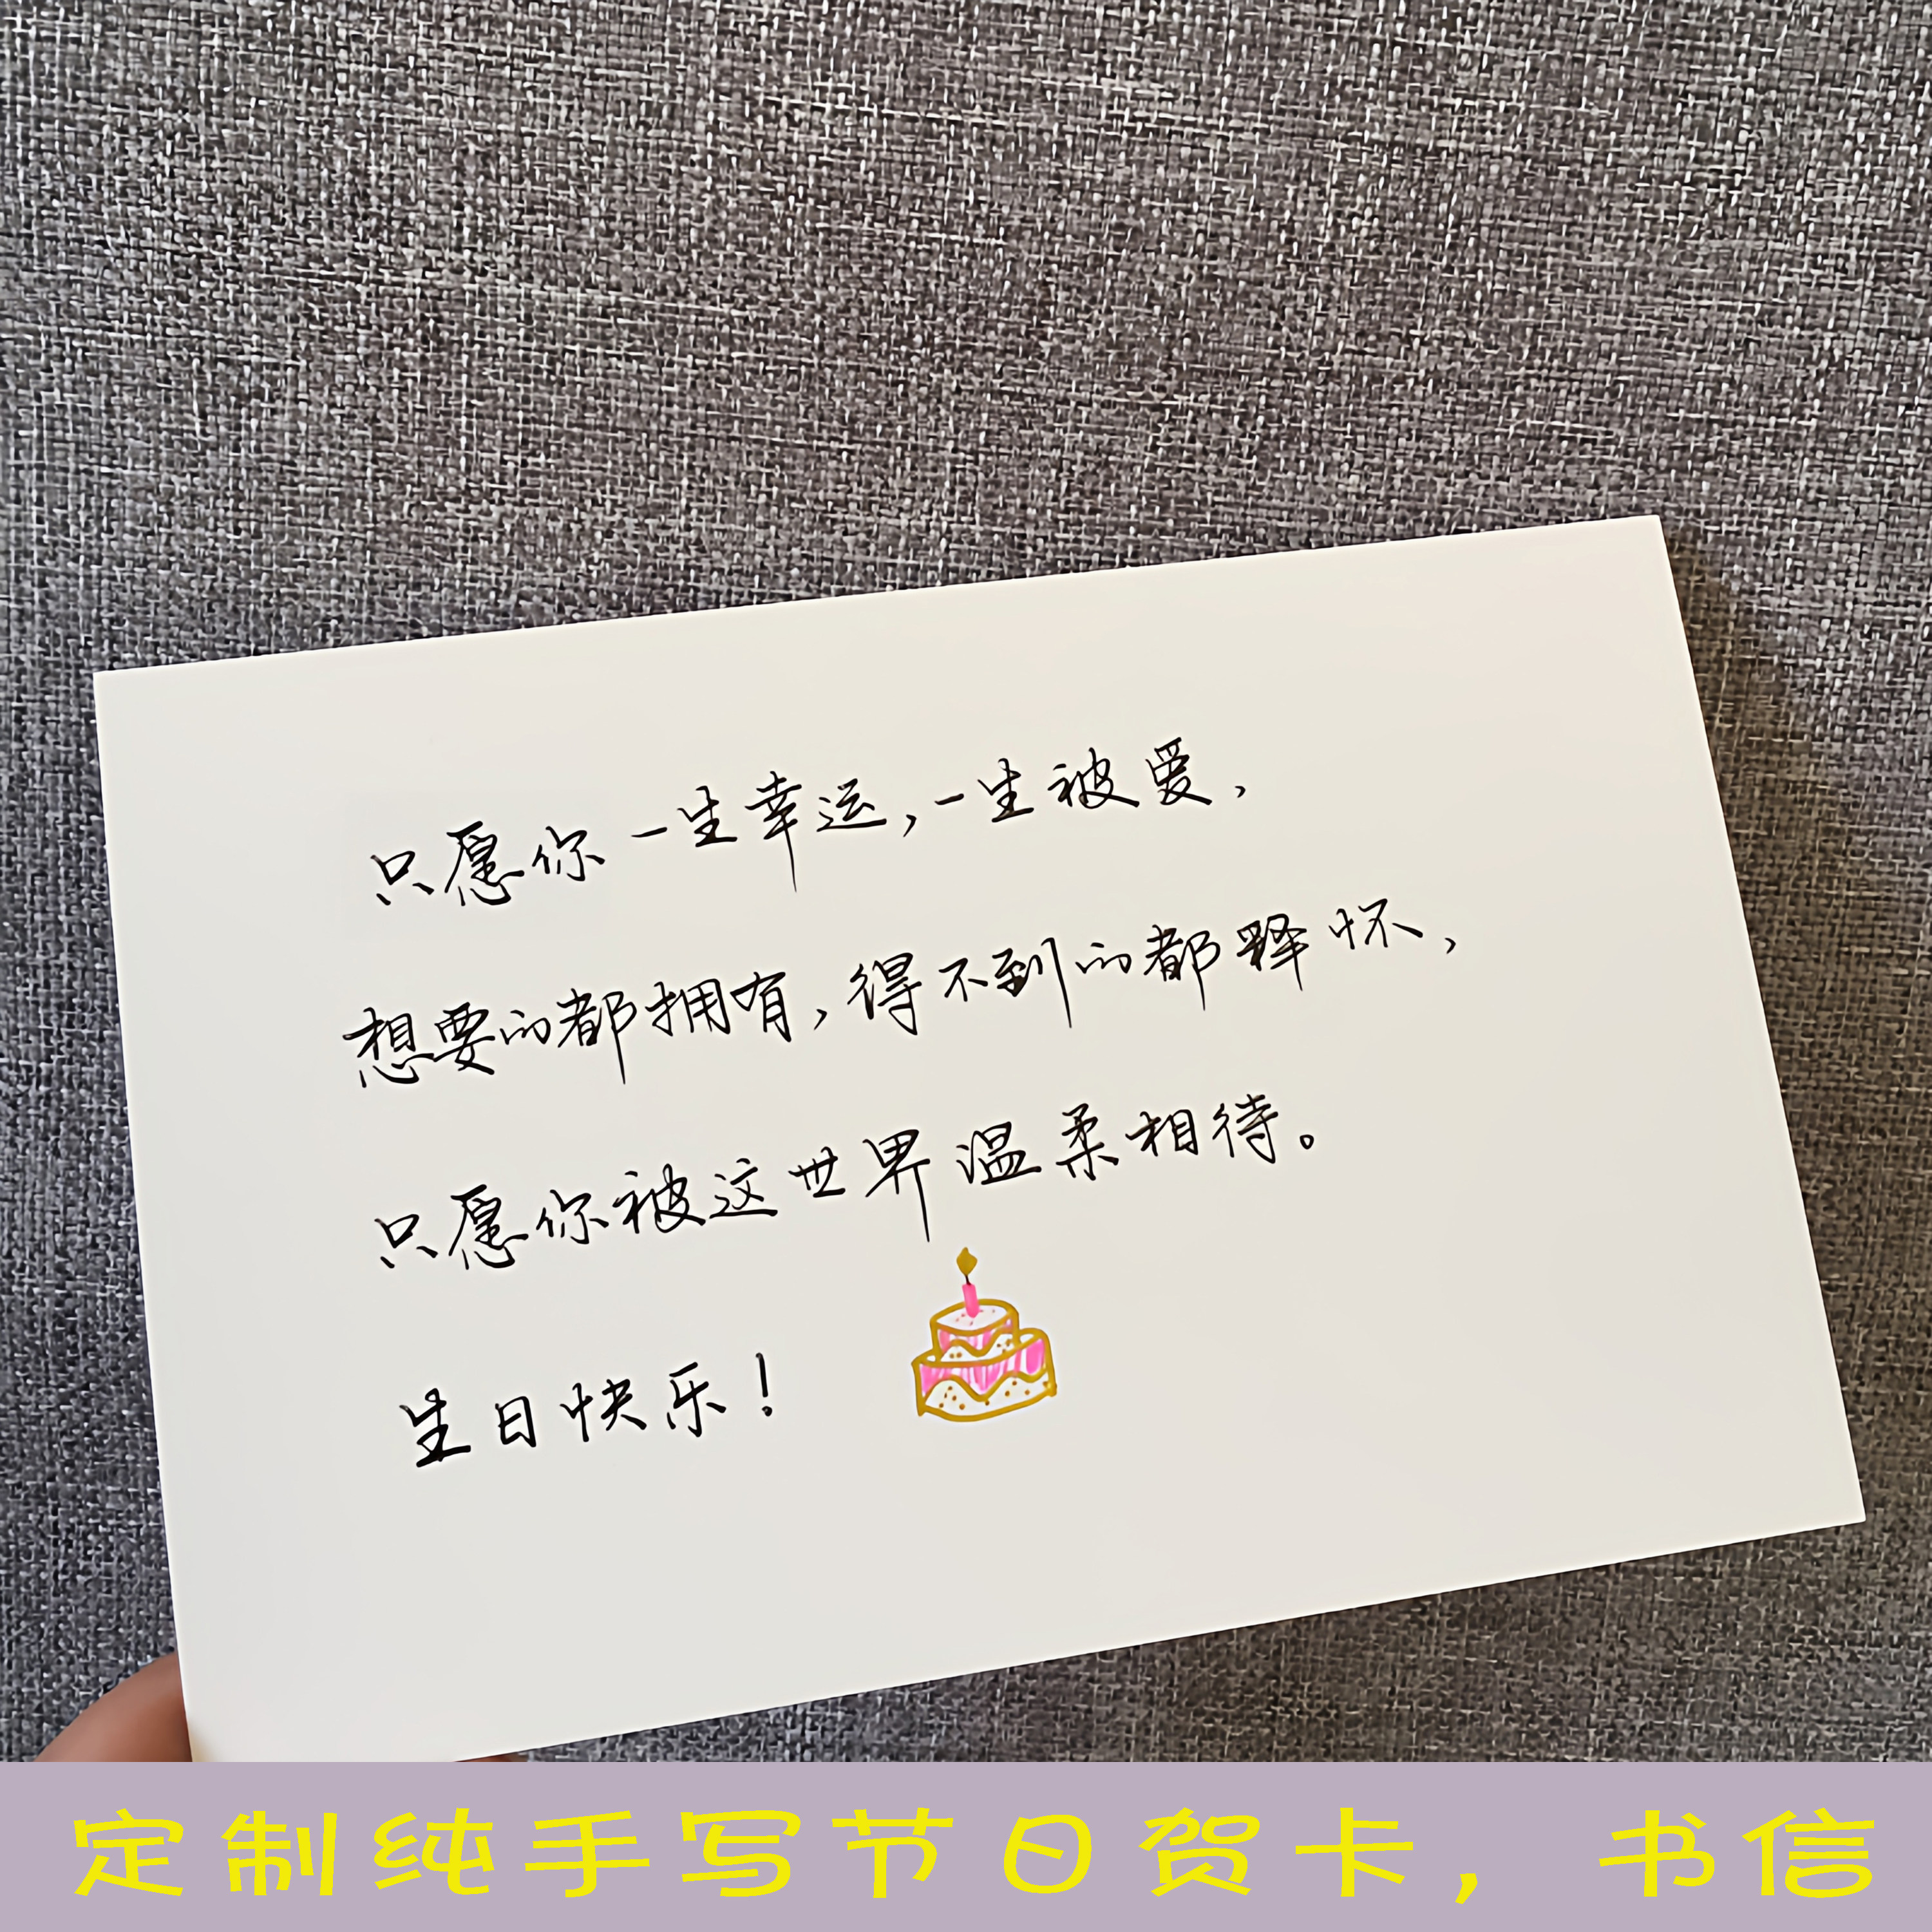 只愿你一生幸运，一生被爱，
想要的都拥有，得不到的都释怀，
只愿你被这世界温柔相待。
生日快乐！
定制纯手写节日贺卡，书信